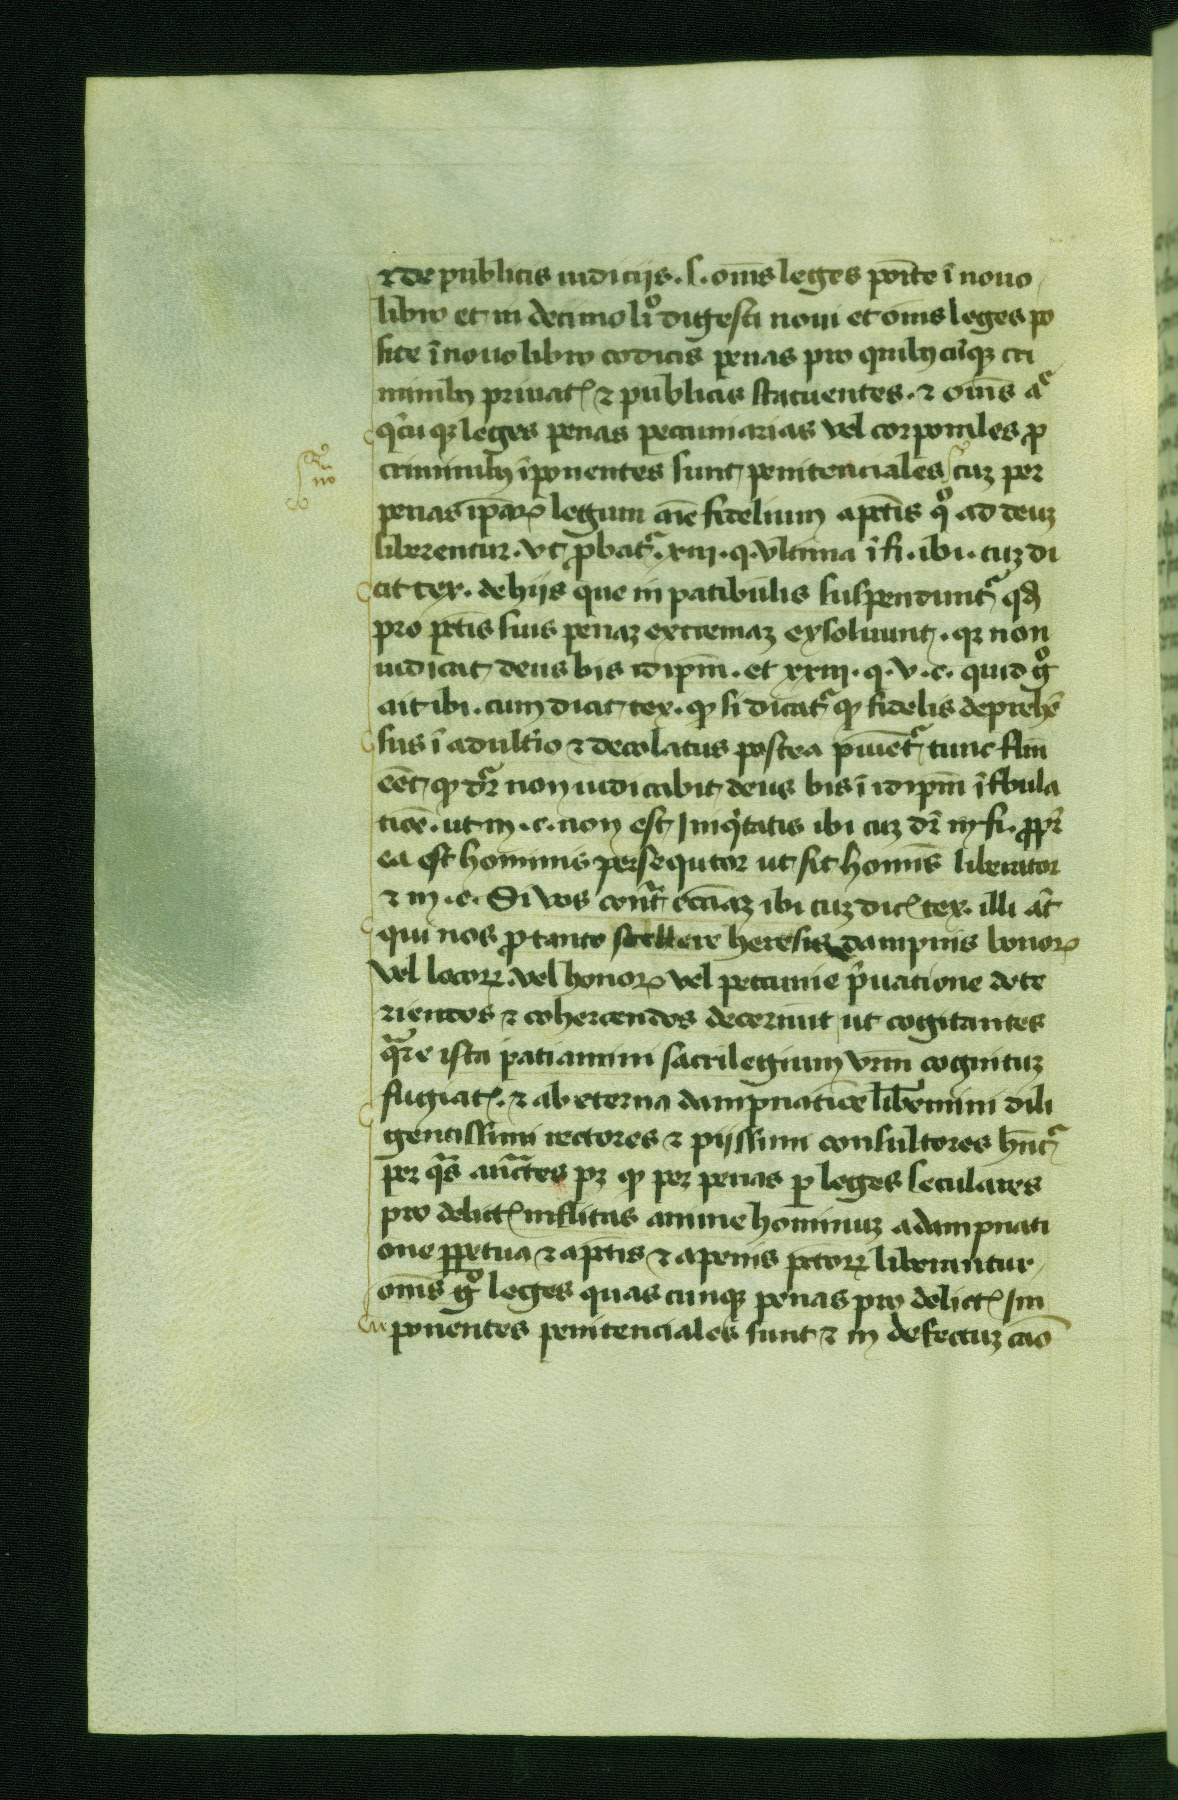 ⁊ de publicis iudicijs . l . om̅s leges posite ī nouo
libro et in decimo lio digesti noui et om̅s leges po
site ī nouo libro codicis penas pro quibꝫ cūqꝫ cri
minibꝫ priuatꝭ ⁊ publicis statuentes . ⁊ om̅s
leges penas peccuniarias vel corporales ꝓ
criminibꝫ īponentes sunt penitenciales cuꝫ per
penas ip̄aꝝ legum aīe fidelium a pctīs ad deuꝫ
liberentur . vt ꝓbatr xiii . q . vltima ī fi . ibi . cuꝫ di
cit tex . de hijs que in patibulis suspenduntr qd
pro pctīs suis penaꝫ extremaꝫ exsoluunt . qꝛ non
iudicat deus bis idip̄m . et xxiii . q . v . c . quid go
ait ibi . cum dicit tex . ꝙ si dicatr ꝙ fidelis deprehē
sus ī adultīo ⁊ decolatus postea tunc
eēt ꝙ dr̄ non iudicabit deus bis ī idip̄m ī tribula
tiōe . ut in . c . non est iniqitatis ibi cuꝫ dr̄ in fi . ꝓpt̄
ea est hominis persequtor ut sit homīs liberator
⁊ in . c . Si vos contra eccīaꝫ ibi cuꝫ dicꝭ tex . illi at̄
qui nos ꝓ tanto scellere heresis dampnis bonoꝝ
vel locoꝝ . vel honoꝝ vel peccunie p̄uatione dete
rrentes ⁊ cohercendos decernūt ut cogitantes
quare ista patiamini sacrilegium vr̄m cognituꝫ
fugiatꝭ . ⁊ ab eterna dampnatiōe lib̄emini dili
gentissimi rectores ⁊ pijssimi consultores hn̄tr
per qas auctates pꝫ ꝙ per penas ꝑ leges seculares
pro delictꝭ inflitas anime hominuꝫ a dampnati
one ꝑpetua ⁊ a pctīs ⁊ a penis pctōꝝ liberantur
om̅s go leges quascunqꝫ penas pro delictꝭ im
ponentes penitenciales sunt ⁊ in defectuꝫ